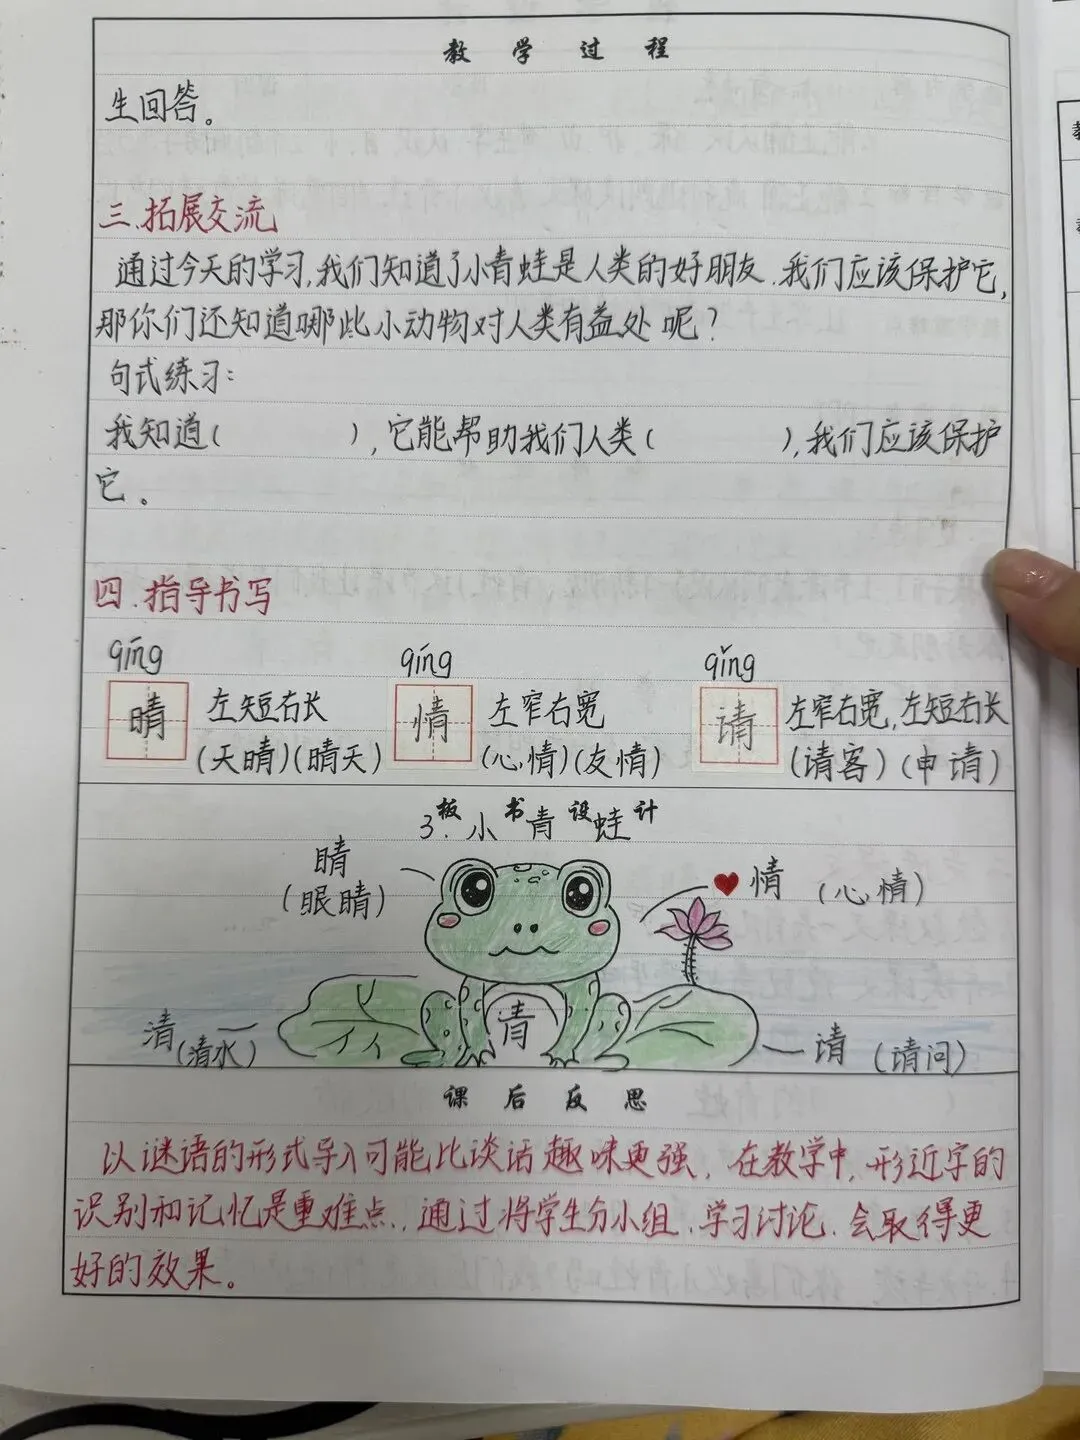 教学过程
生回答。
三.拓展交流
通过今天的学习,我们知道了小青蛙是人类的好朋友.我们应该保护它,
那你们还知道哪些小动物对人类有益处呢?
句式练习:
我知道( ),它能帮助我们人类( ),我们应该保护
它。
四.指导书写
qíng qíng qǐng
晴 左短右长 情 左窄右宽 请 左窄右宽,左短右长
(天晴)(晴天) (心情)(友情) (请客)(申请)
板书设计
3.小青蛙
睛 情 (心情)
(眼睛)
青
清(清水) 请(请问)
课后反思
以谜语的形式导入可能比谈话趣味更强,在教学中,形近字的
识别和记忆是重难点,通过将学生分小组,学习讨论,会取得更
好的效果。